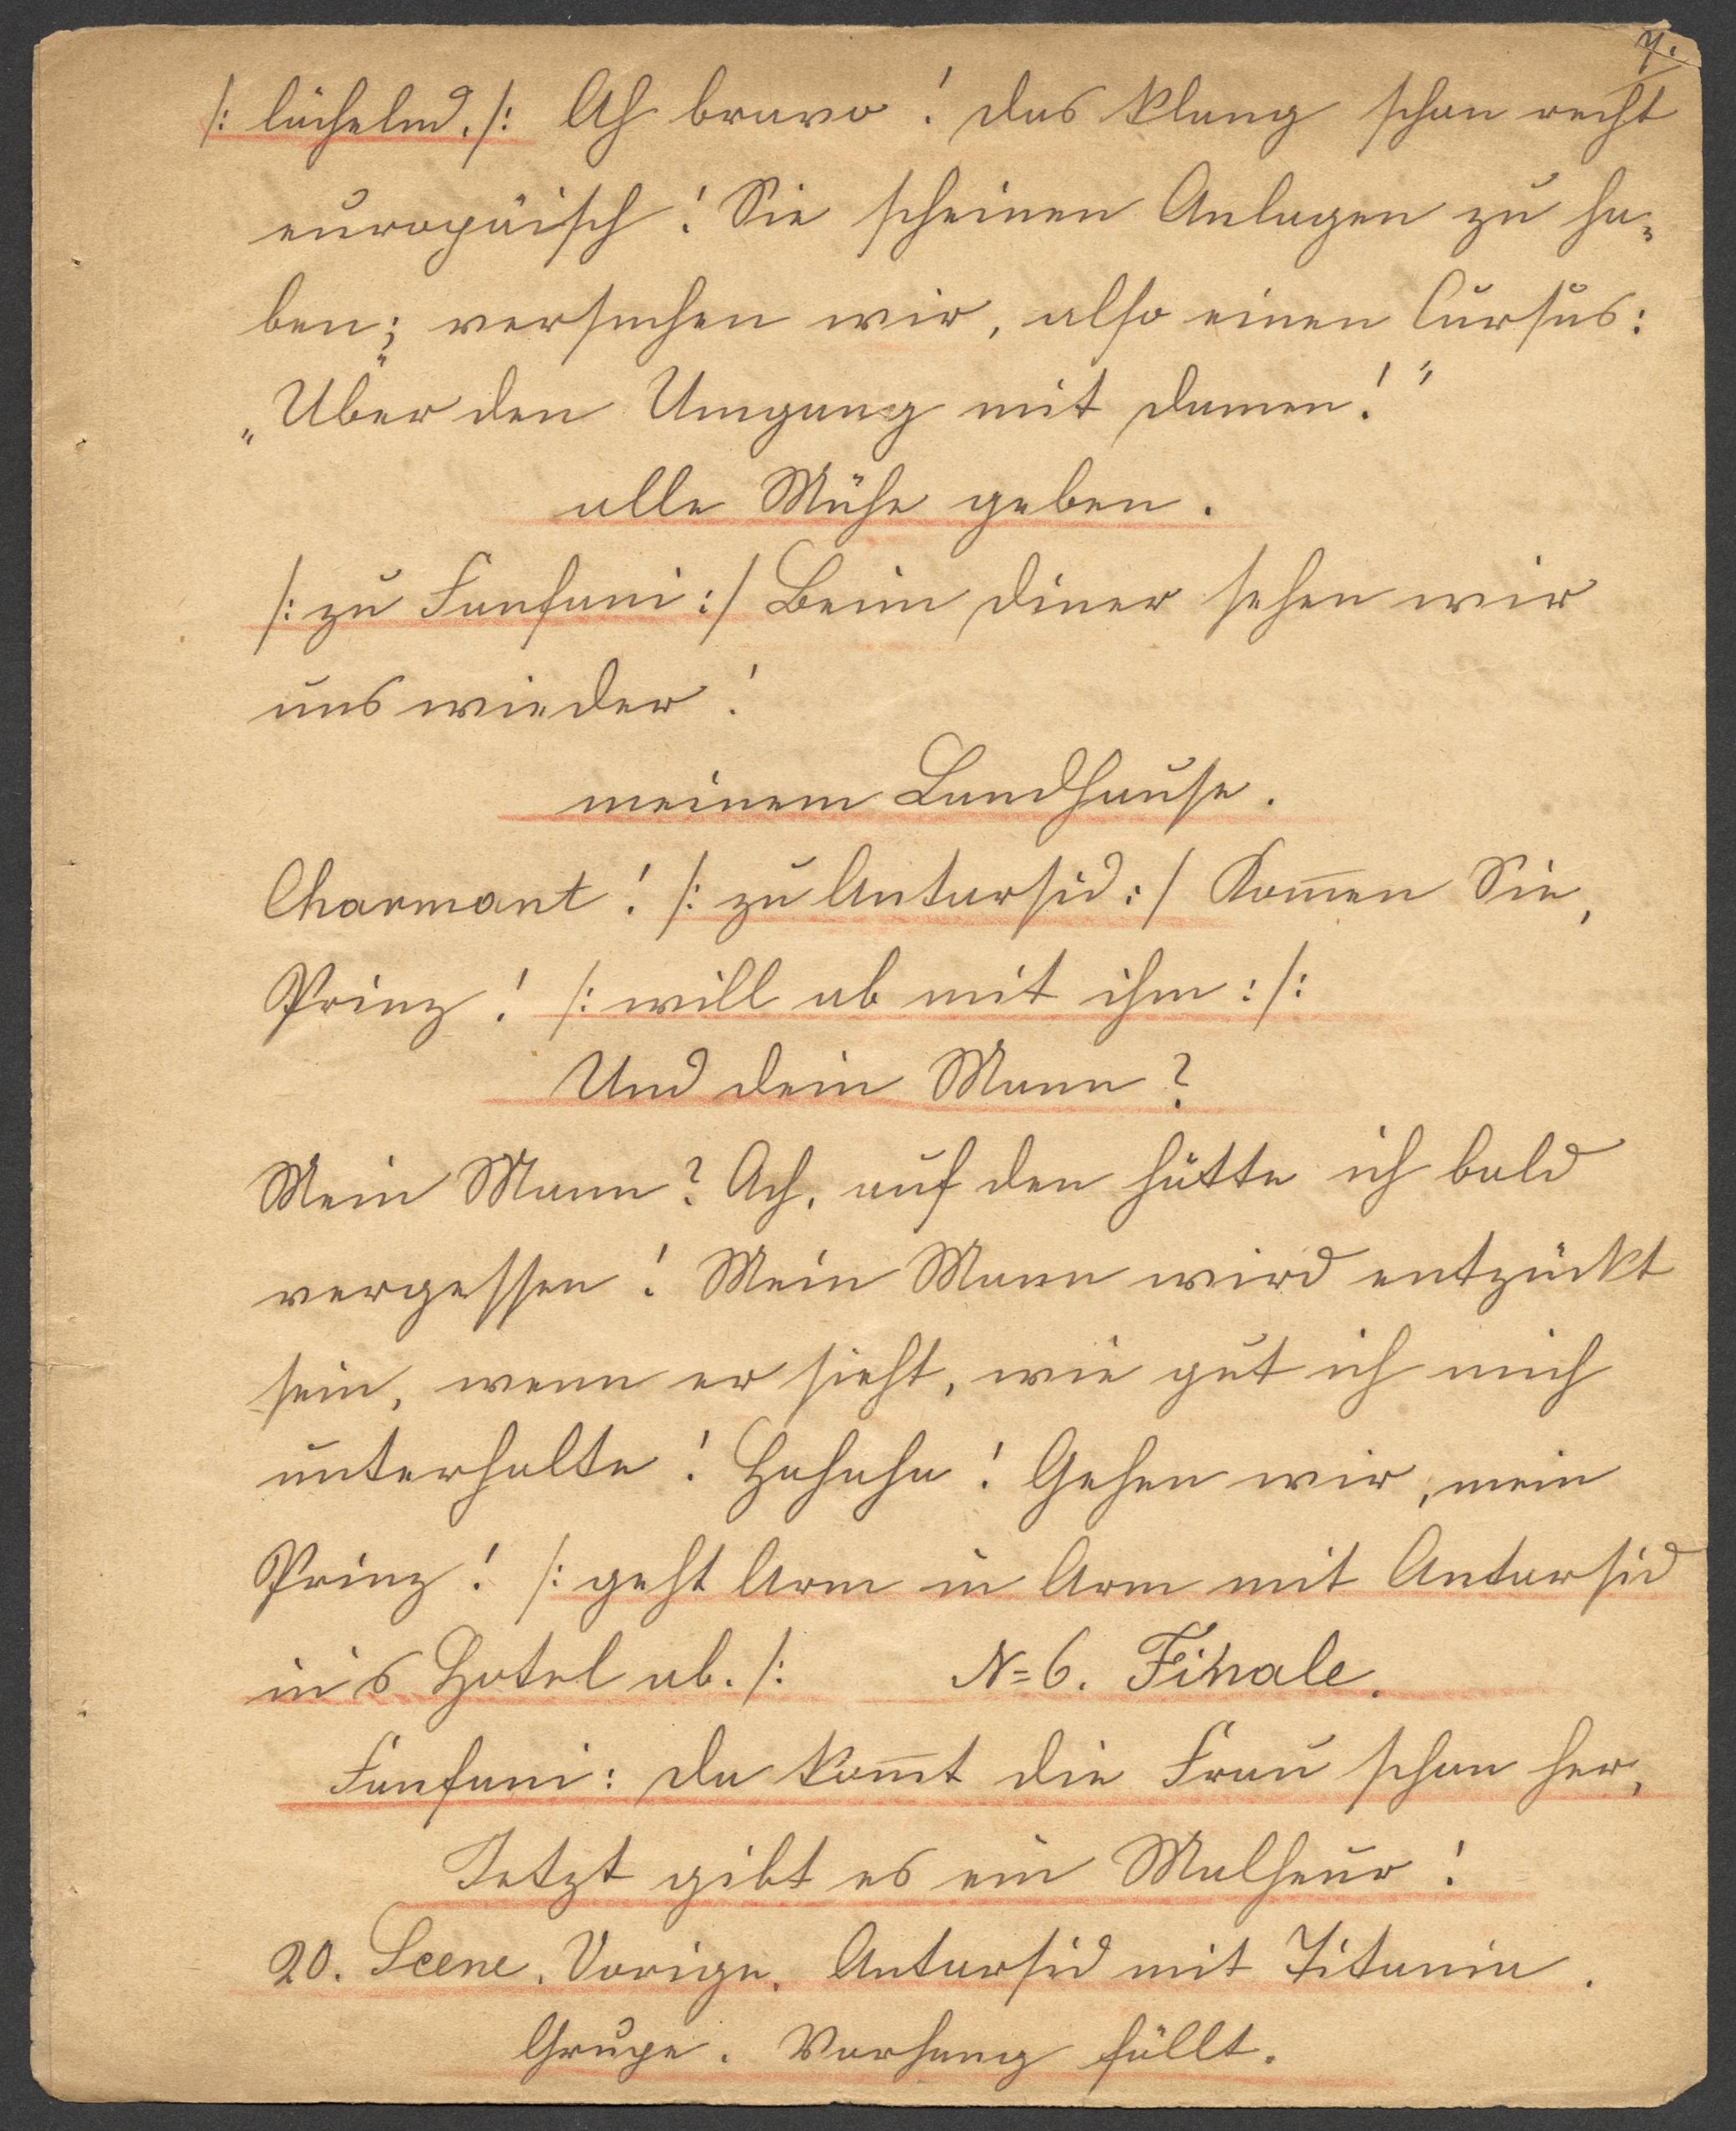 7.
/: lächelnd. /: Ah bravo! das klang schon recht
europäisch! Sie scheinen Anlagen zu ha=
ben; versuchen wir, also einen Cursus:
„Über den Umgang mit Damen!"
alle Mühe geben.
/: zu Fanfani :/ Beim Diner sehen wir
uns wieder!
meinem Landhause.
Charmant! /: zu Antarsid :/ Kom̅en Sie,
Prinz! /: will ab mit ihm :/:
Und dein Mann?
Mein Mann? Ach, auf den hätte ich bald
vergessen! Mein Mann wird entzückt
sein, wenn er sieht, wie gut ich mich
unterhalte! Hahaha! Gehen wir, mein
Prinz! /: geht Arm in Arm mit Antarsid
in's Hotel ab. /: N=6. Finale.
Fanfani: Da kom̅t die Frau schon her,
Jetzt gibt es ein Malheur!
20. Scene. Vorige. Antarsid mit Titania.
Grupe. Vorhang fällt.